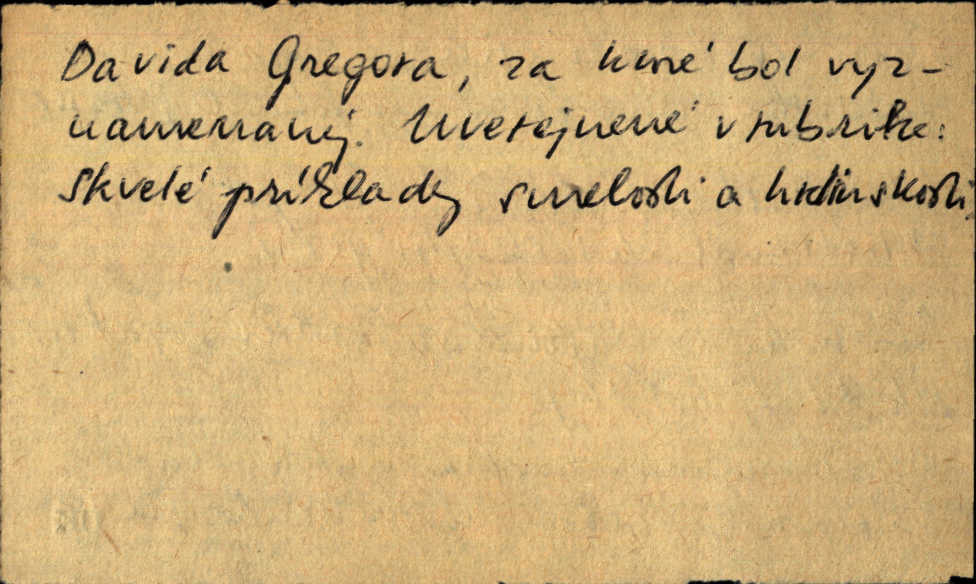 Davida Gregora, za ktoré bol vyz-
namenaný. Uverejnené v rubrike:
Skvelé príklady smelosti a hrdinskosti.